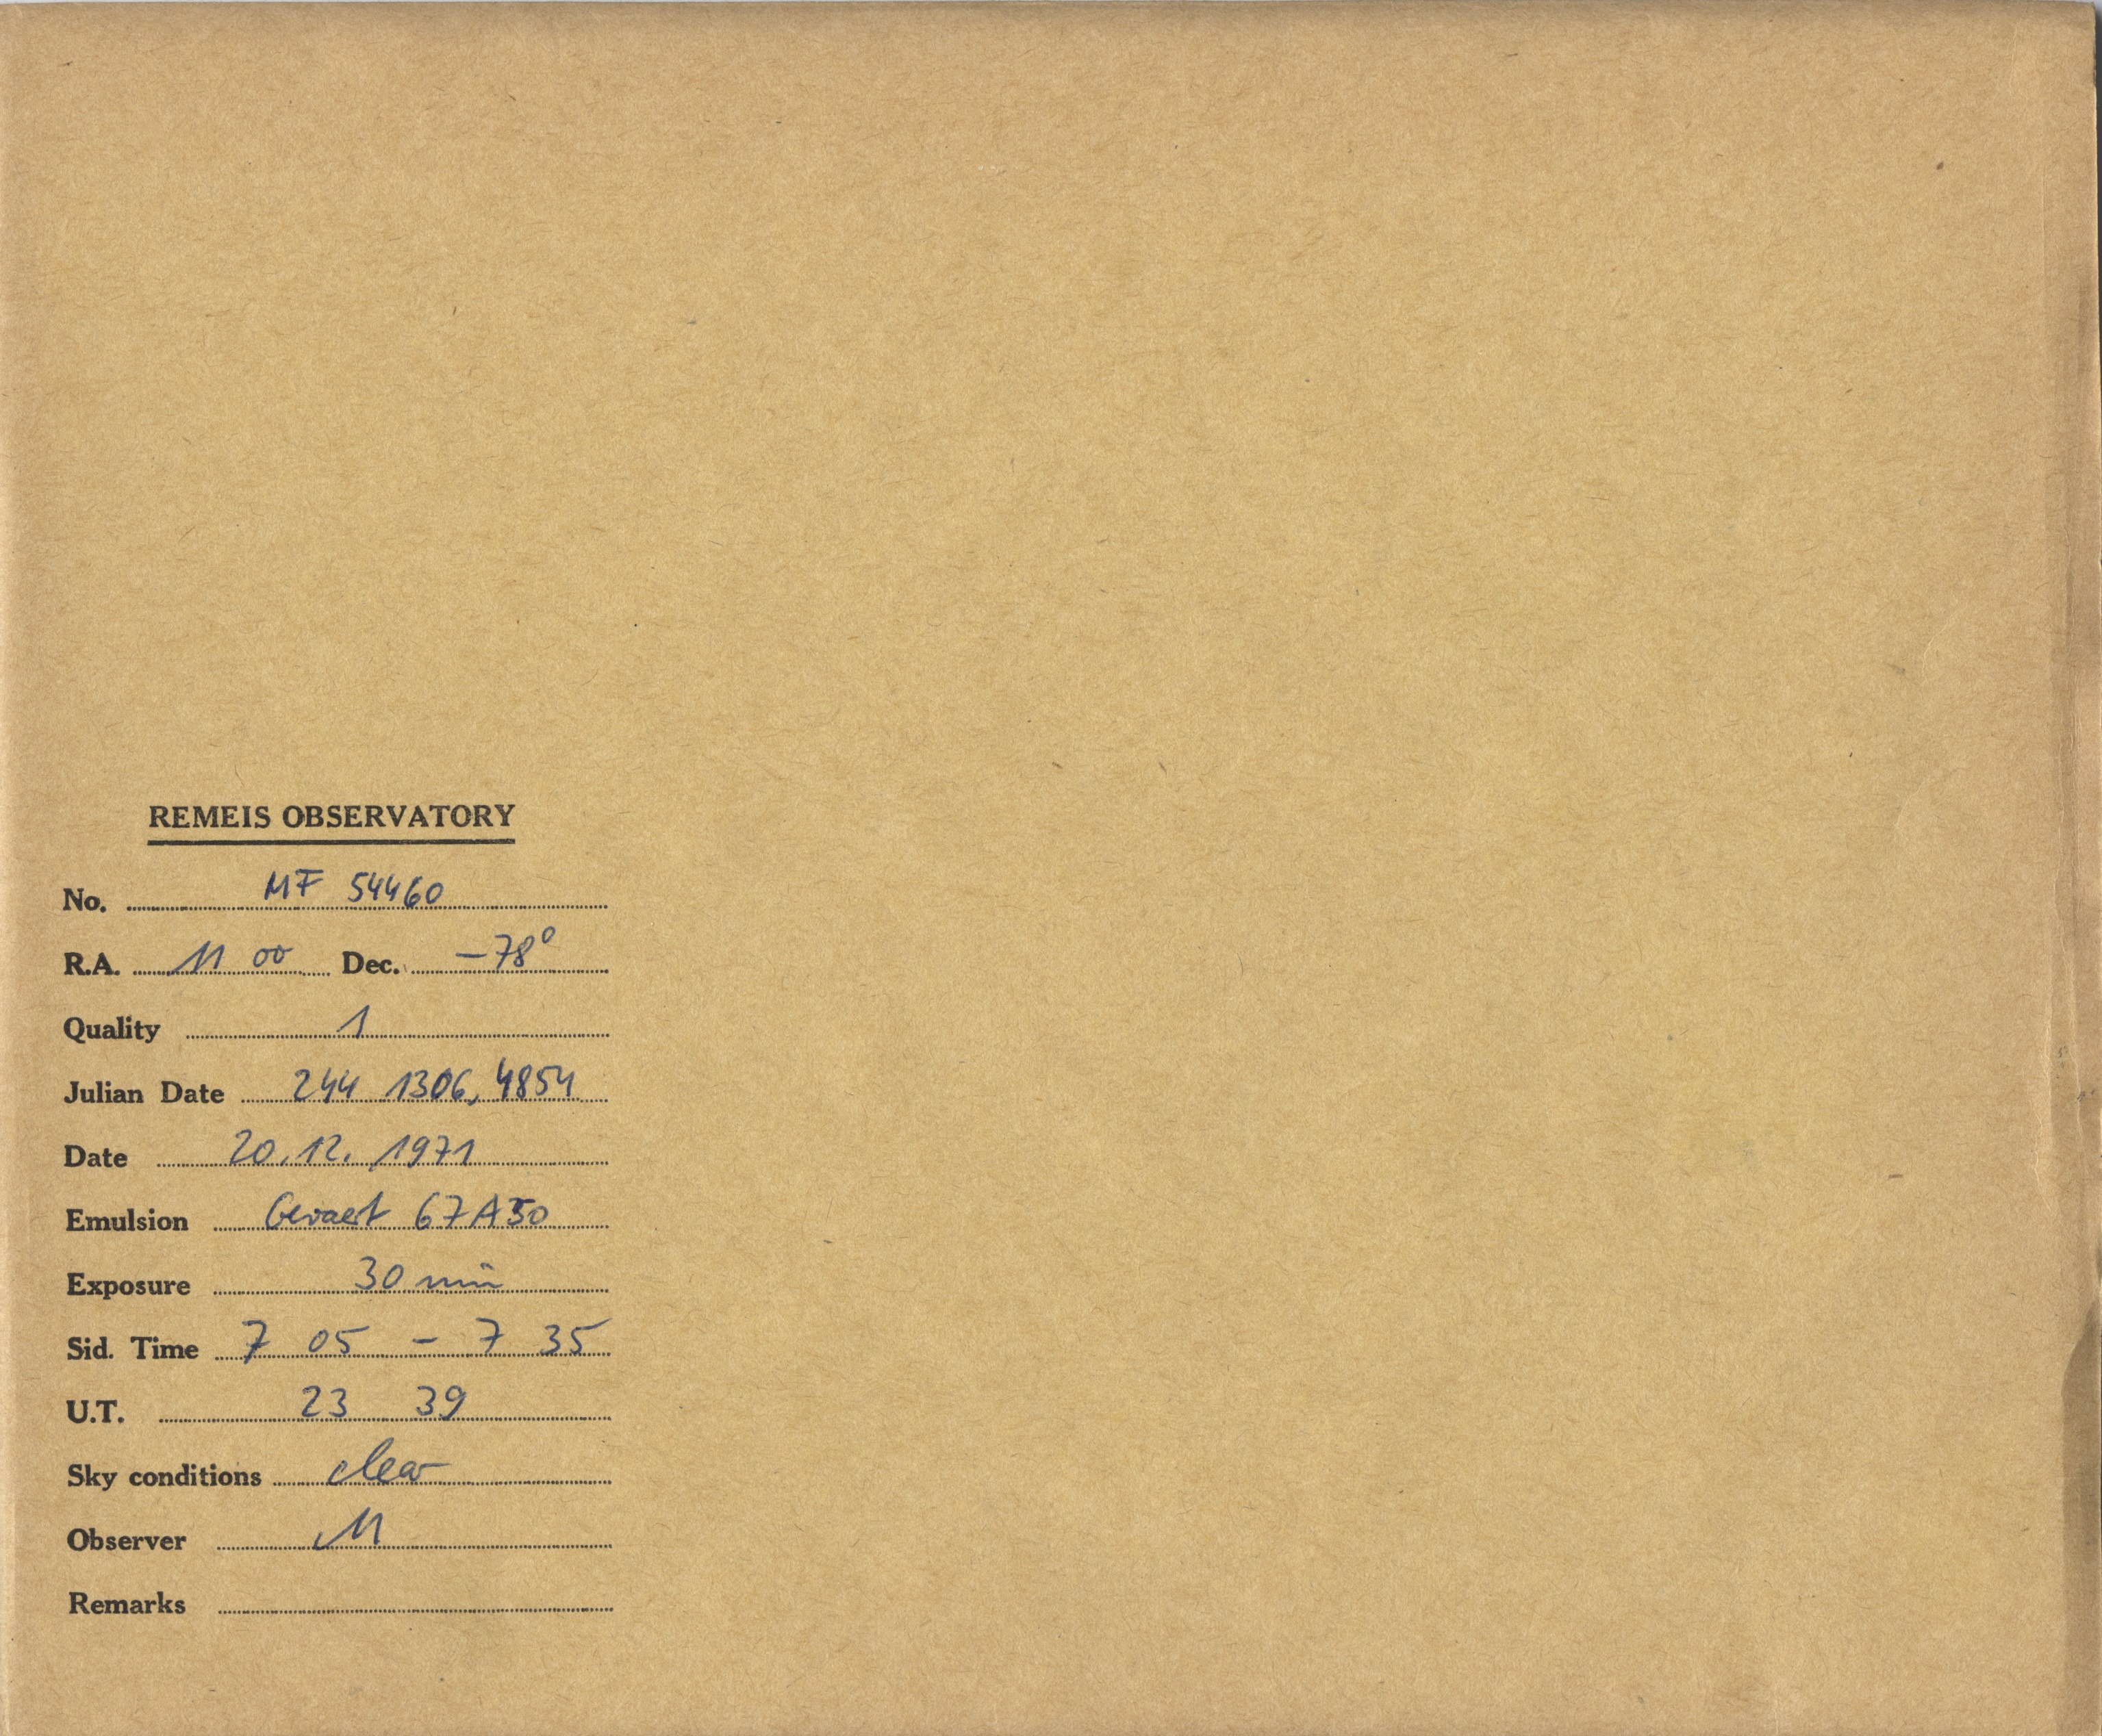 REMEIS OBSERVATORY
No. MF 54460
R.A. 11 00 Dec. -78°
Quality 1
Julian Date 244 1306,4854
Date 20.12.1971
Emulsion Gevaert 67A50
Exposure 30 min
Sid. Time 7 05 - 7 35
U.T. 23 39
Sky conditions clear
Observer M
Remarks